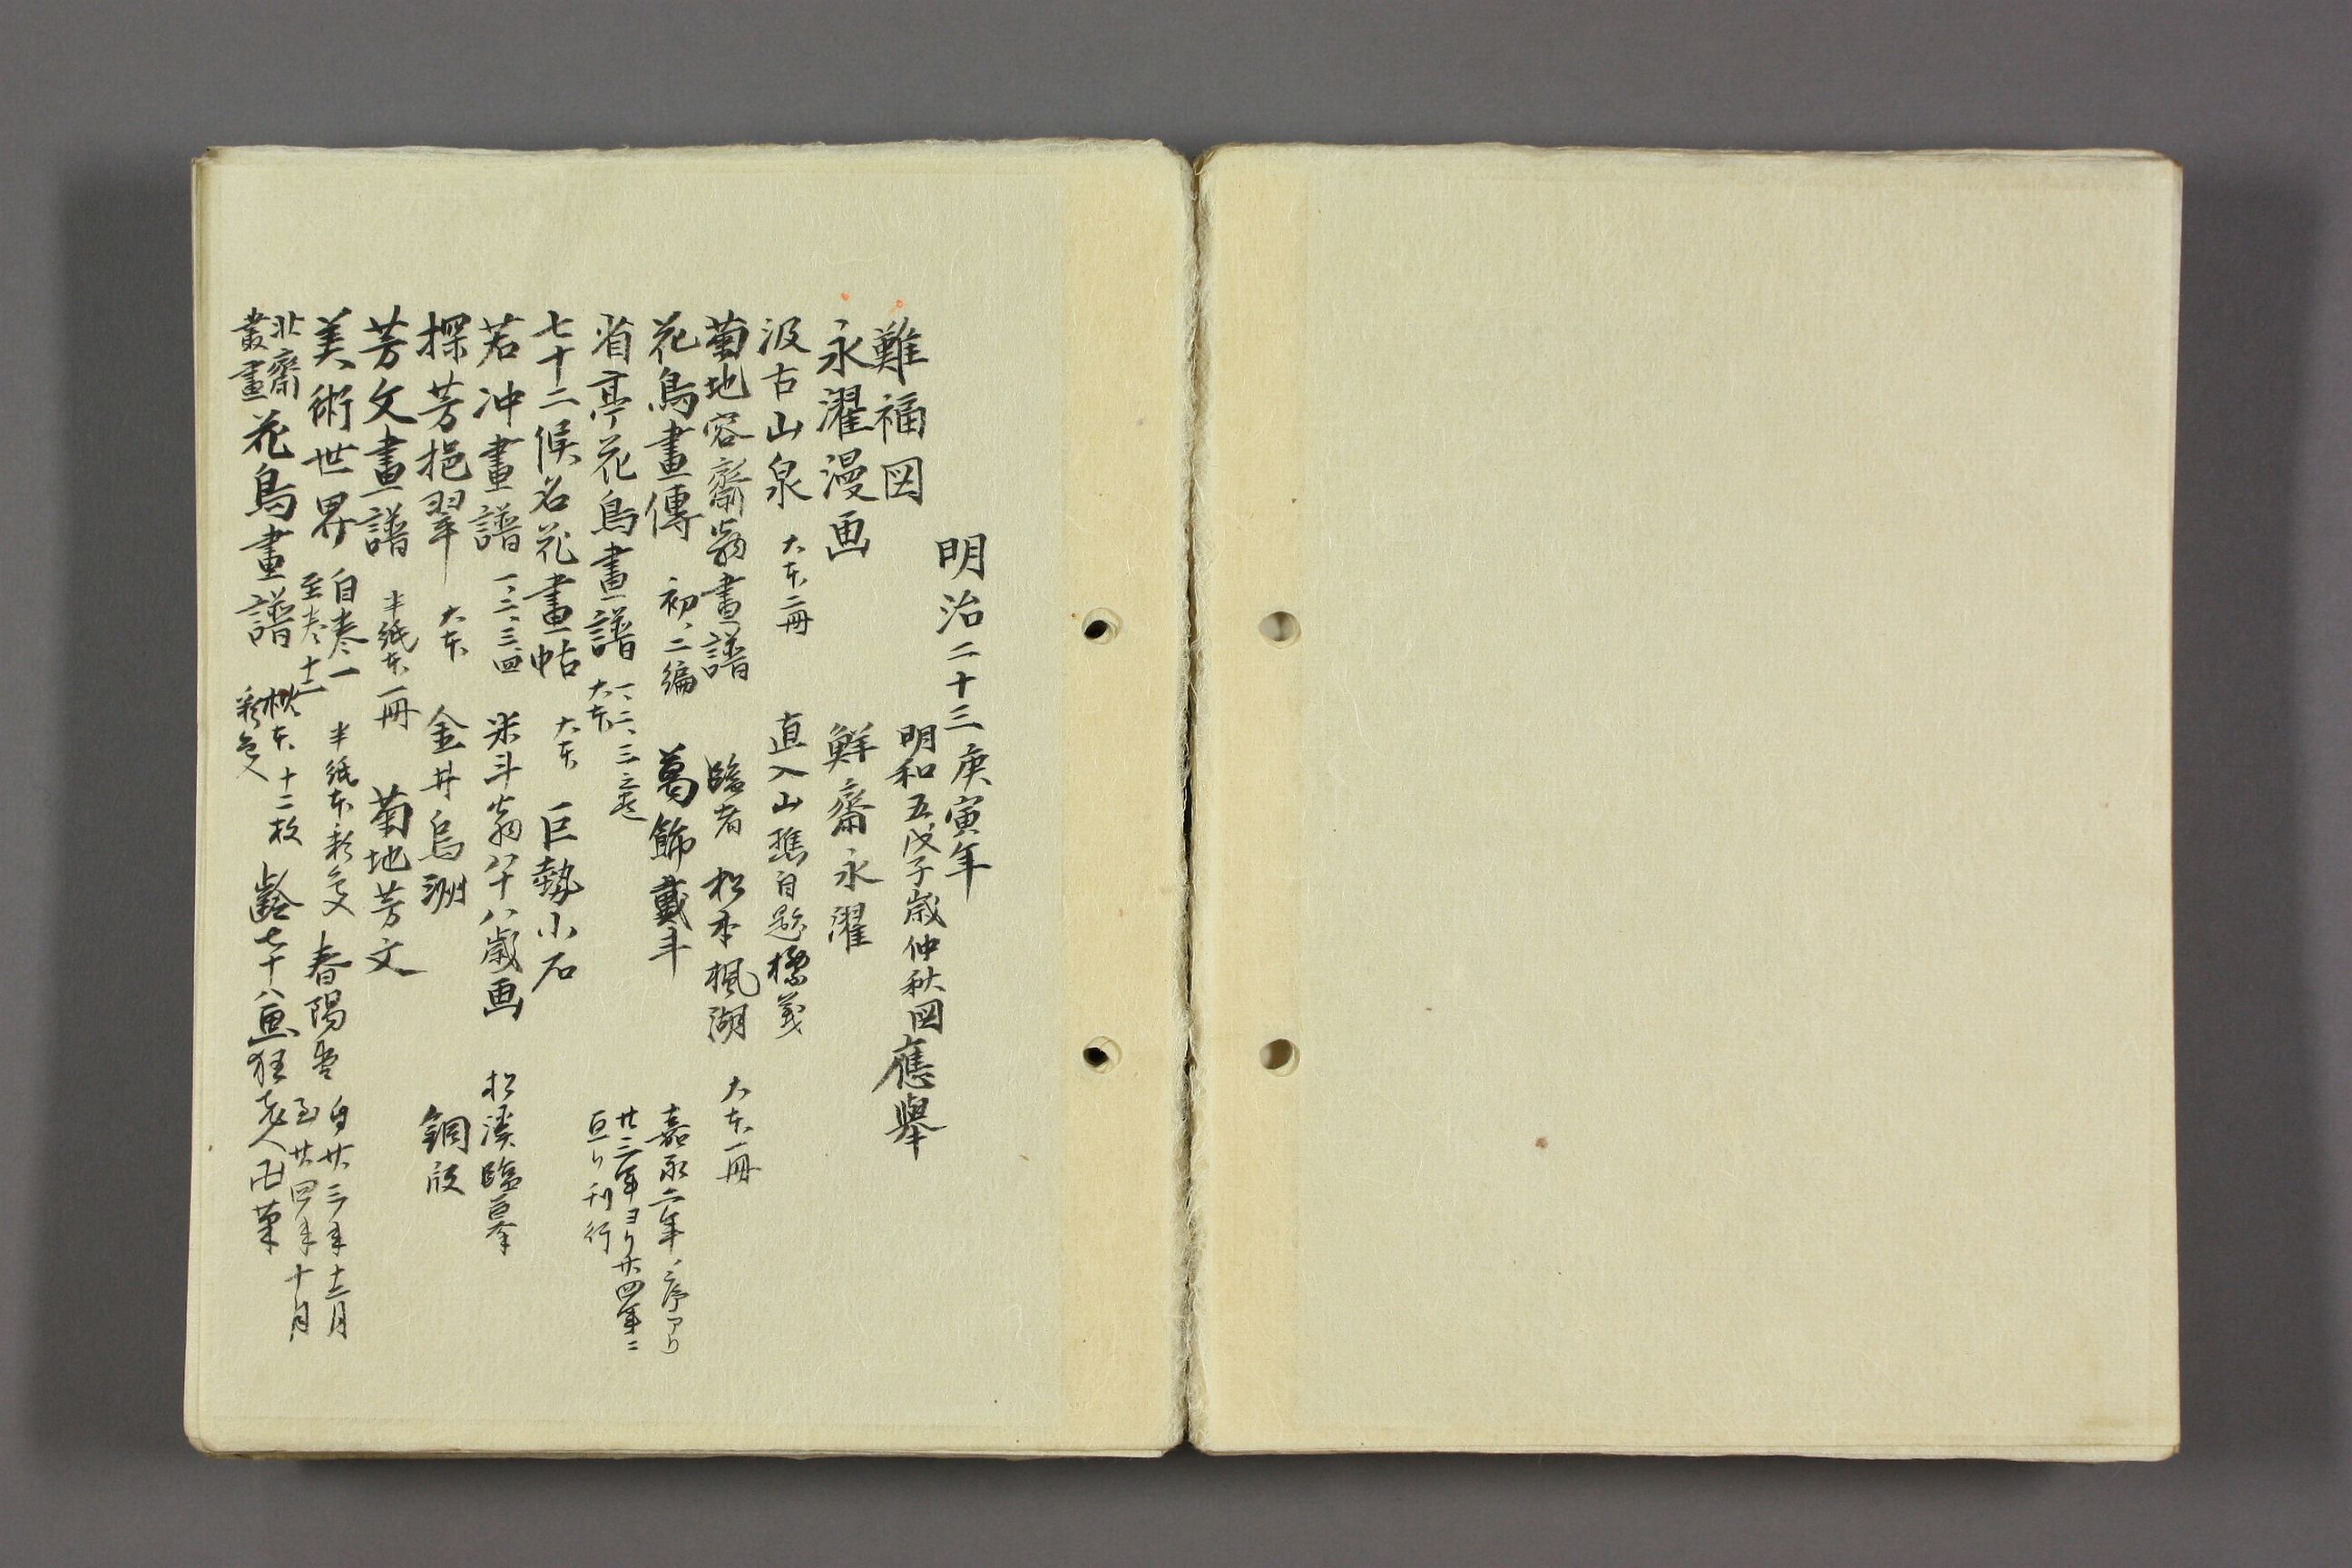 明治二十三庚寅年
難福図 明和五戊子歳仲秋図應舉
永濯漫画 鮮齋永濯
汲古山泉 大本二冊 直入山樵自題標箋
菊地容齋翁畫譜 臨者 松本楓湖 大本一冊
花鳥畫傳 初、二編 葛飾戴斗 嘉永二年ノ序アリ
省亭花鳥畫譜 一、二、三之巻 大本 廿三年ヨリ廿四年ニ亘リ刊行
七十二候名花畫帖 大本 巨勢小石
若冲畫譜 一、二、三、四 米斗翁八十八歳画 松溪臨摹
探芳挹翠 大本 金井烏洲 銅版
芳文畫譜 半紙本一冊 菊地芳文
美術世界 自巻一至巻十二 半紙本彩色 春陽堂 自廿三年十二月至廿四年十月
北齋叢畫 花鳥畫譜 横本十二枚 彩色 齢七十八画狂老人卍筆